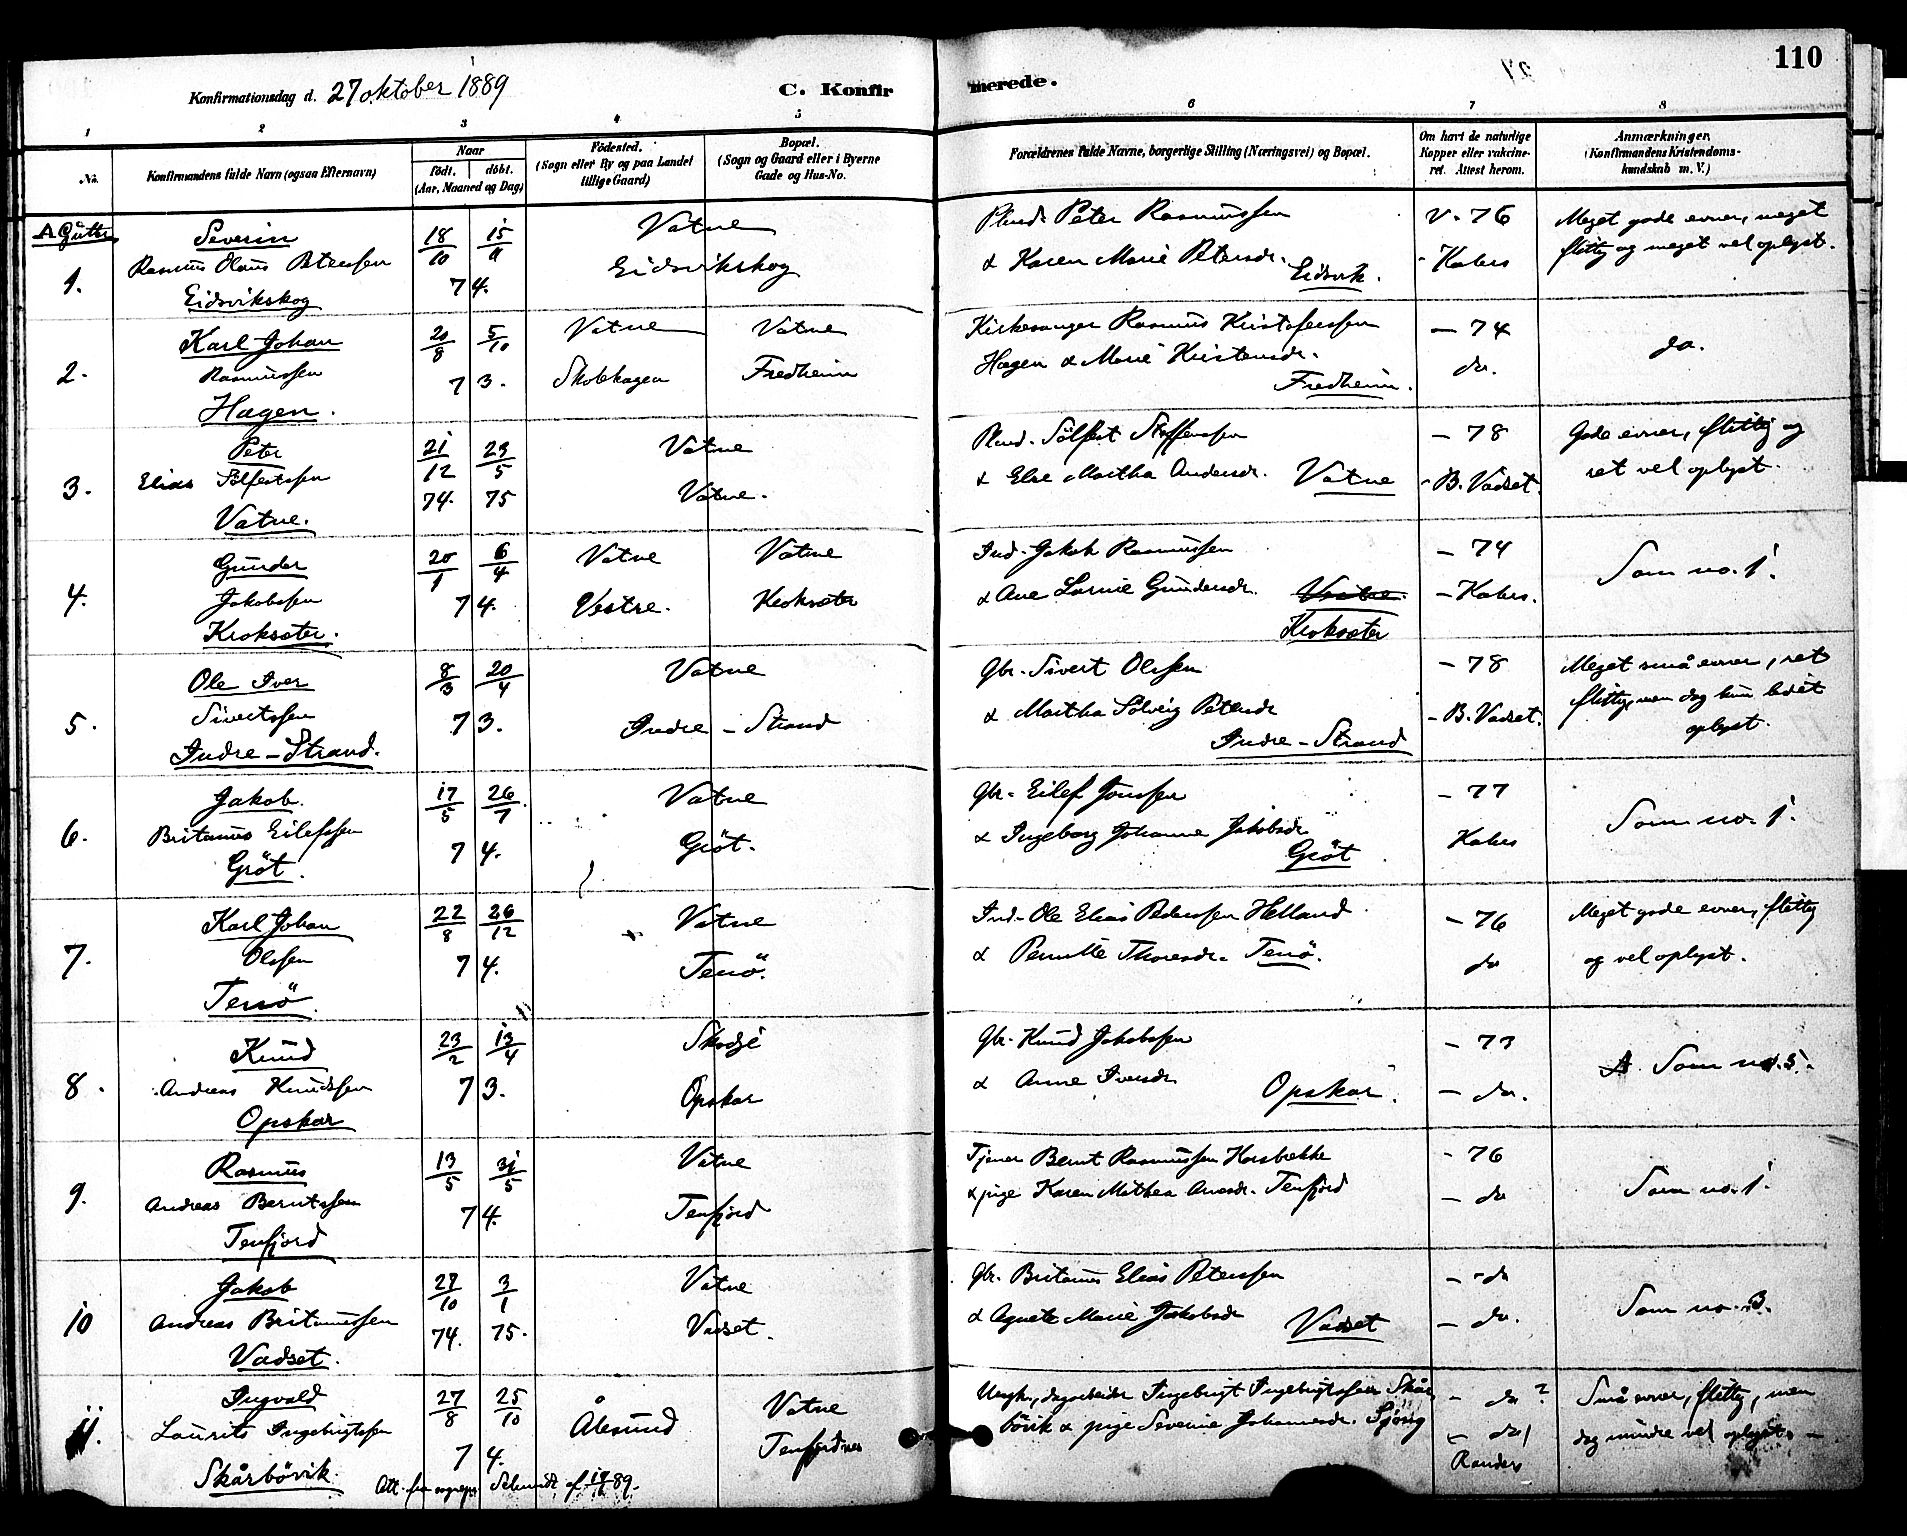 110
Konfirmationsdag d. 27 oktober 1889
C. Konfirmerede.
1 2 3 4 5 6 7 8
No.
Konfirmandens fulde Navn (ogsaa Efternavn)
Naar
födt. döbt.
(Aar, Maaned og Dag)
Födested.
(Sogn eller By og paa Landet
tillige Gaard)
Bopæl.
(Sogn og Gaard eller i Byerne
Gade og Hus-No.
Forældrenes fulde Navne, borgerlige Stilling (Næringsvei) og Bopæl.
Om havt de naturlige
Kopper eller vakcine-
ret. Attest herom.
Anmærkninger.
(Konfirmandens Kristendoms-
kundskab m. V.)
A Gutter
1.
Severin
Rasmus Olaus Petersen
Eidsvikskog
18/10 15/11
74.
Vatne
Eidsvikskog
Peter Rasmussen
& Karen Marie Petersdr. Eidsvik.
v. 76
Meget gode evner, meget
flittig og meget vel oplyst.
2.
Karl Johan
Rasmussen
Hagen.
20/8 5/10
73.
Vatne Vatne
Skolehagen Fredheim
Kirkesanger Rasmus Kristofersen
Hagen & Marie Kristensdr.
Fredheim.
– 74
do.
do.
3.
Peter
Elias Sölfestsen
Vatne.
21/12 23/5
74. 75
Vatne
Vatne.
Sölfest Steffensen
& Else Martha Andersdr. Vatne
– 78
- B. Vadset.
Gode evner, flittig og
ret vel oplyst.
4.
Gunder
Jakobsen
Kroksæter.
20/1 6/4
74.
Vatne Vatne
Vestre. Kroksæter
Ind. Jakob Rasmussen
& Ane Gundersdr. Vestre.
Kroksæter
– 74
Som no. 1.
5.
Ole Iver
Sivertsen
Indre-Strand.
8/3 20/4
73.
Vatne
Indre – Strand
Gbr. Sivert Olsen
& Martha Solveig Petersdr
Indre-Strand
– 78
- B. Vadset.
Meget små evner, ret
flittig, men dog kun lidet
oplyst.
6.
Jakob
Britanus Eilefsen
Gröt.
17/5 26/7
74.
Vatne
Gröt.
Gbr. Eilef Jonsen
& Ingeborg Johanne Jakobsdr
Gröt
– 77
Som no. 1.
7.
Karl Johan
Olsen
Tenö
22/8 26/12
74.
Vatne
Tenö.
Ind. Ole Elias Pedersen Helland
& Pernille Thoresdr. Tenö.
– 76
do
Meget gode evner, flittig
og vel oplyst.
8.
Knud
Andreas Knudsen
Opskar
23/2 13/4
73.
Skodje
Opskar
Gbr. Knud Jakobsen
& Anne Iversdr Opskar.
– 77
– do.
Som no. 5.
9.
Rasmus
Andreas Berntsen
Tenfjord
13/5 31/5
74.
Vatne
Tenfjord
Tjener Bernt Rasmussen Horsbække
& pige Karen Mathea Tenfjord
- 76
– do
Som no. 1.
10
Jakob
Andreas Britanussen
Vadset.
27/10 3/1
74. 75.
Vatne
Vadset.
Gbr. Britanus Elias Petersen
& Agnete Marie Jakobsdr Vadset
– do
– do.
Som no. 3.
11.
Ingvald
Laurits Ingebrigtsen
Skårbövik.
27/8 25/10
74.
Ålesund
Vatne
Tenfjordnes
Ungk., dagarbeider Ingebrigt Ingebrigtsen Skår-
bövik & pige Severine Johannesdr.
– do ?
– do
Randers
Små evner, flittig, men
dog mindre vel oplyst. –
Att. fra sogнepr. Schmidt af 89.